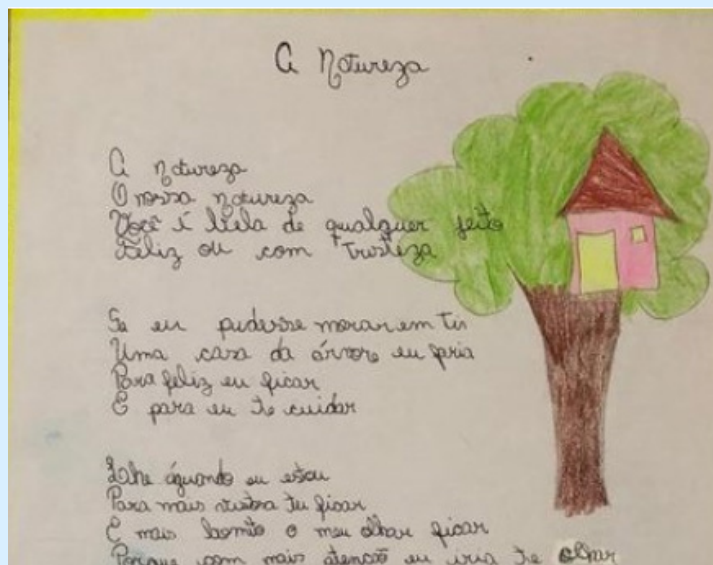 A Natureza
A natureza
O nossa natureza
Você é bela de qualquer jeito
Feliz ou com tristeza
Se eu pudesse morar em ti
Uma casa da árvore eu faria
Para feliz eu ficar
E para eu te cuidar
águando eu estou
Para mais tu ficar
E mais bonito o meu olhar ficar
Porque com mais atenção eu iria te olhar